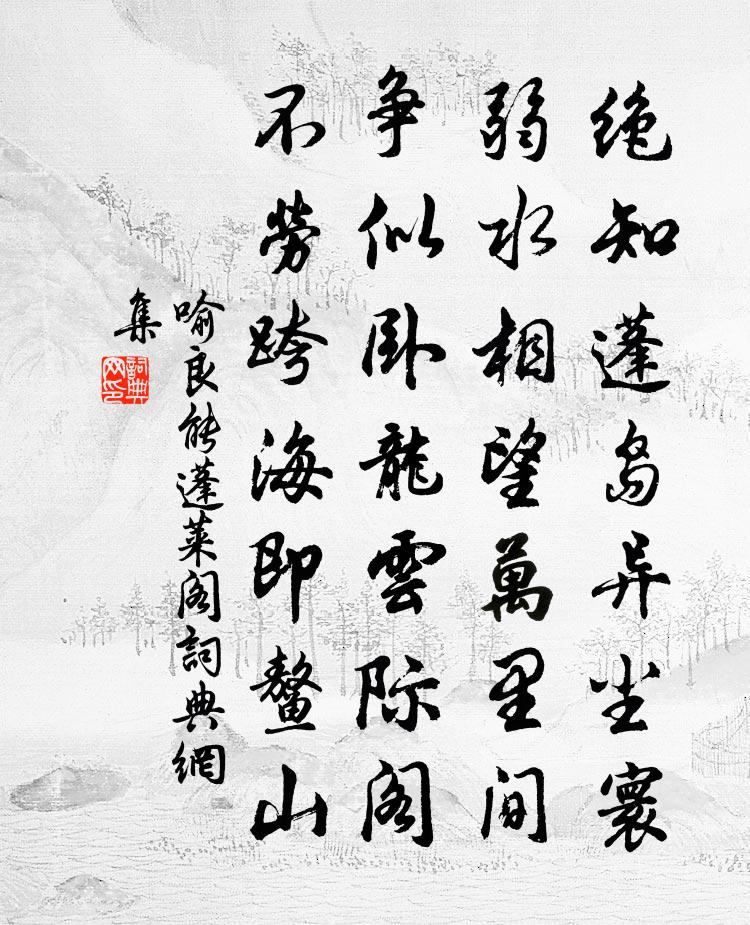 绝知蓬岛异尘寰
弱水相望萬里间
争似卧龍雲际阁
不勞跨海即鳌山
喻良能蓬萊阁詞典網
集
詞典
网印